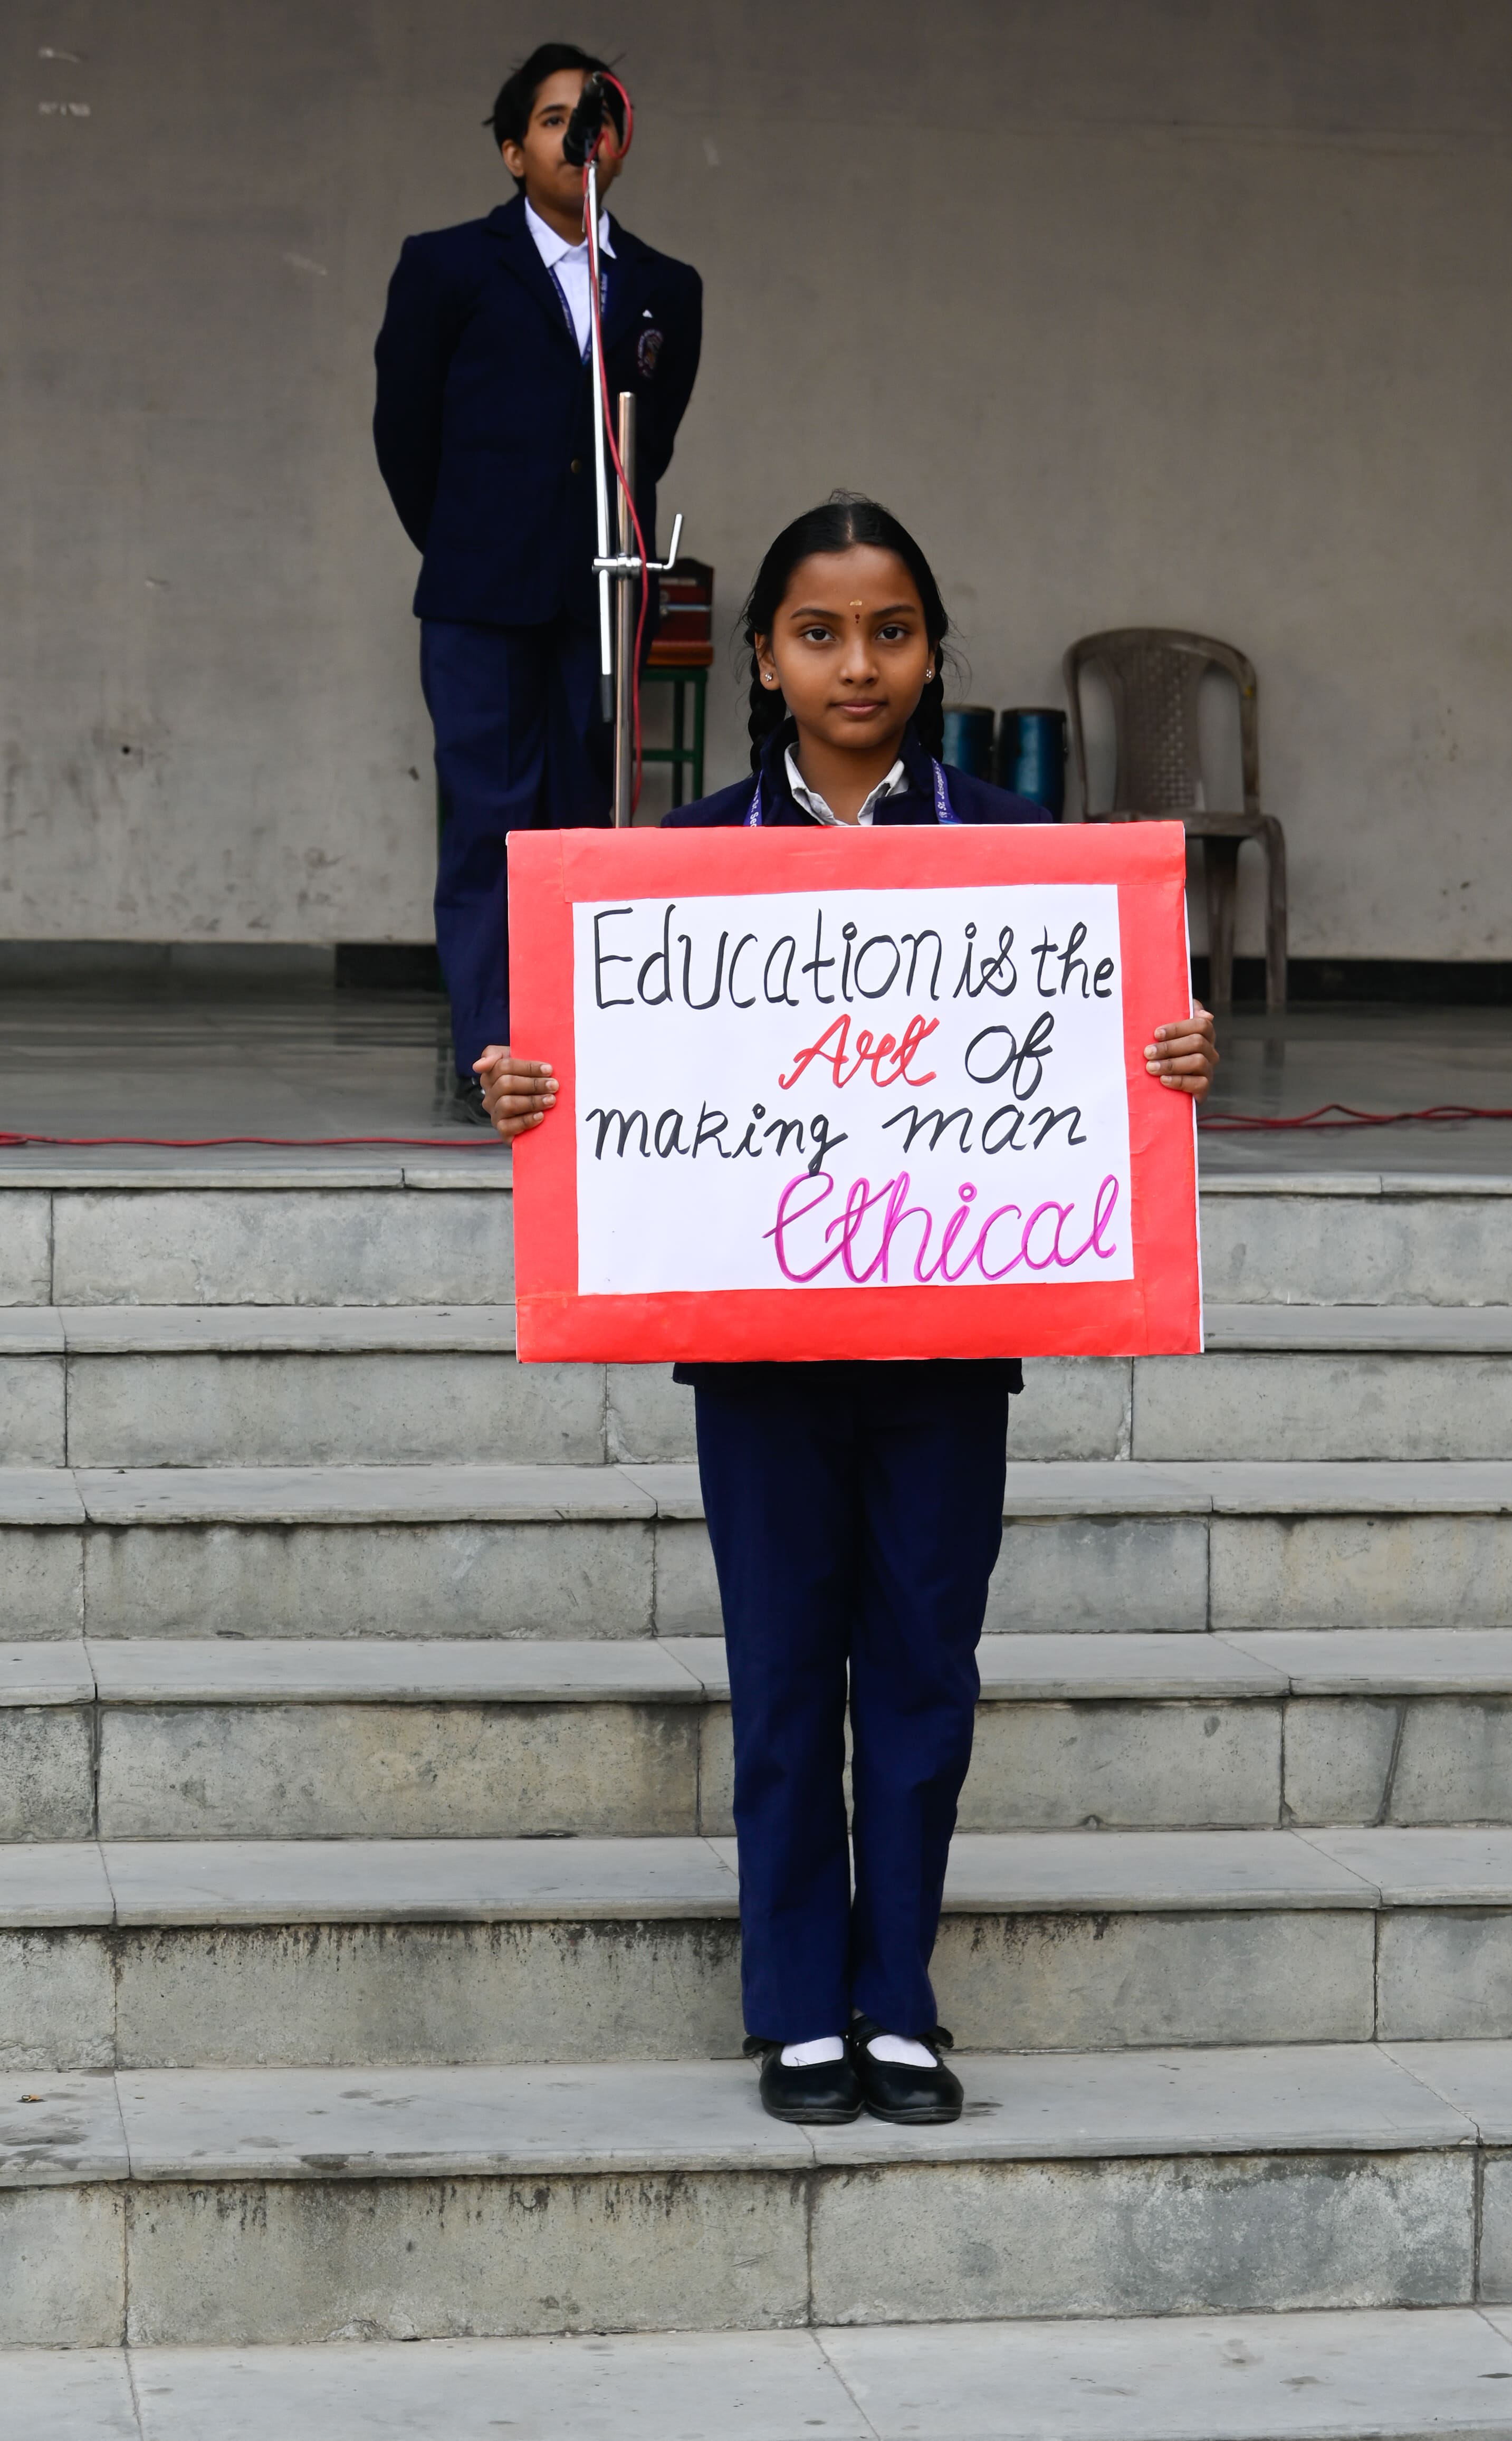 Education is the
Art of
making man
Ethical